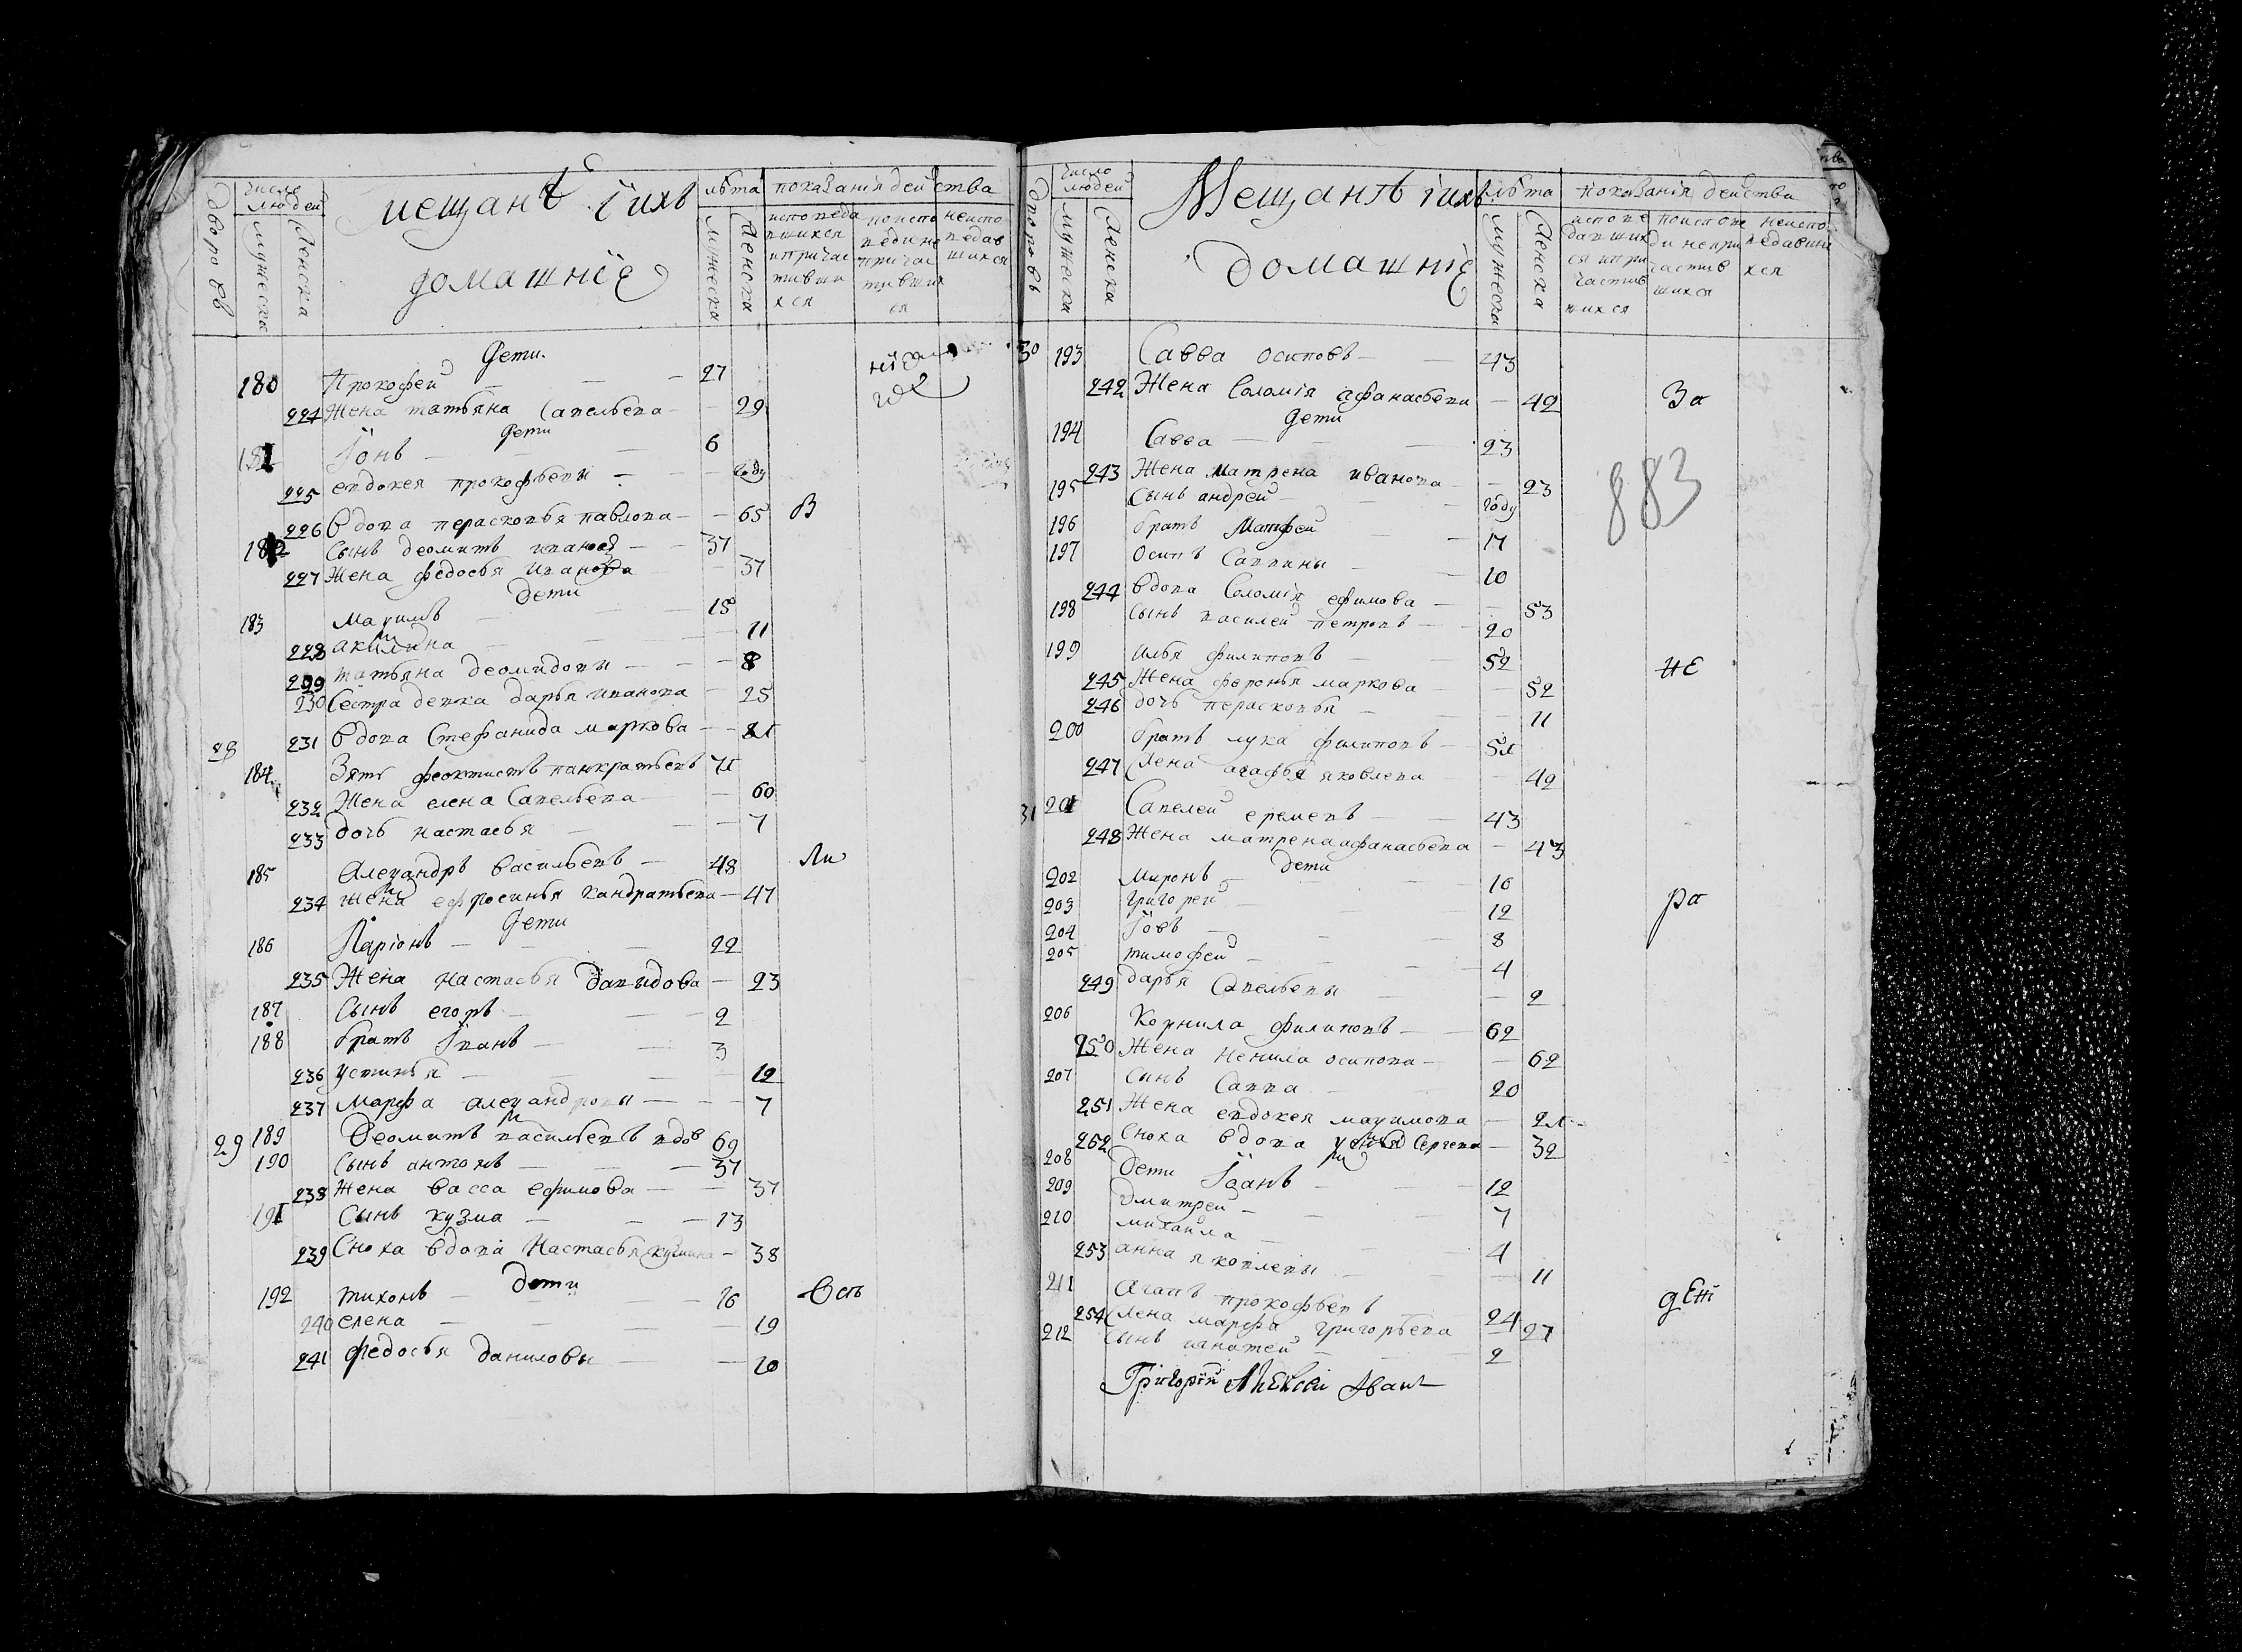 Дворовъ
Число людей
Мужеска
Женска
Мещанъ ïихъ
домашнïе
лѣта
Мужеска
Женска
показанiя действа
исповедавшихся ипричастившихся
поисповедине причастившихся
неисповедавшихся
Дети
180 Прокофей — 27
224 Жена татьяна Савельева — 29
Дети
181 Ïонъ — 6
225 евдокея прокофьевы — году
226 вдова перасковья павлова — 65 В
182 Сынъ деомитъ иванов — 37
227 Жена федосья Иванова — 37
Дети
183 Мауимъ — 15
228 акилина — 11
229 татьяна деомидовы — 8
230 Сестра девка дарья иванова — 25
231 вдова Стефанида маркова —
28 184 Зять феоктистъ панкратьевъ
232 Жена елена Савельева — 60
233 дочь настасья — 7
185 Алеуандръ васильевъ — 48 Ли
234 Жена ефросинья кандратьева — 47
Дети
186 Ларiонъ — 22
235 Жена настасья давидова — 23
187 Сынъ егоръ — 2
188 братъ Ïванъ — 3
236 устинья — 12
237 Марфа алеуандровы — 7
29 189 Деомитъ васильевъ вдов 69
190 Сынъ антонъ — 37
238 Жена васса ефимова — 37
191 Сынъ кузма — 13
239 Сноха вдова Настасья кузмина — 38
Дети
192 тихонъ — 16
240 елена — 19
241 федосья даниловы — 10
Дворовъ
Число людей
Мужеска
Женска
Мещанъ iихъ
домашнiе
лѣта
Мужеска
Женска
показанiя действи
исповедавшихся ипричастившихся
поисповединепричастившихся
неисповедавшихся
30 193 Савва осиповъ — 43
242 Жена Соломiя афанасьева — 42 За
Дети
194 Савва — 23
883
243 Жена матрена иванова — 23
195 Сынъ андрей — году
196 братъ Матфей — 17
197 Осипъ Саввины — 10
244 вдова Соломiя ефимова — 53
198 Сынъ василей петровъ — 20
199 илья филиповъ — 52 НЕ
245 Жена февронья маркова — 52
246 дочь перасковья — 11
200 братъ лука филиповъ —
247 Жена агафья яковлева — 42
31 201 Савелей еремевъ — 43
248 Жена матрена афанасьева — 43
Дети
202 миронъ — 16
203 григорей — 12 ра
204 Ïовъ — 8
205 тимофей — 4
249 дарья Савельевы — 2
206 Корнила филиповъ — 62
250 Жена ненила осипова — 62
207 Сынъ Савва — 20
251 Жена евдокея мауимова —
252 Сноха вдова Сергева — 32
208 Дети Ïванъ — 12
209 дмитрей — 7
210 михаила — 4
253 анна яковлевы — 11
211 Агапъ прокофьевъ — 24 дЕти
254 Жена марфа григорьева — 27
212 Сынъ игнатей — 2
Григорiй Алексiй Иванъ